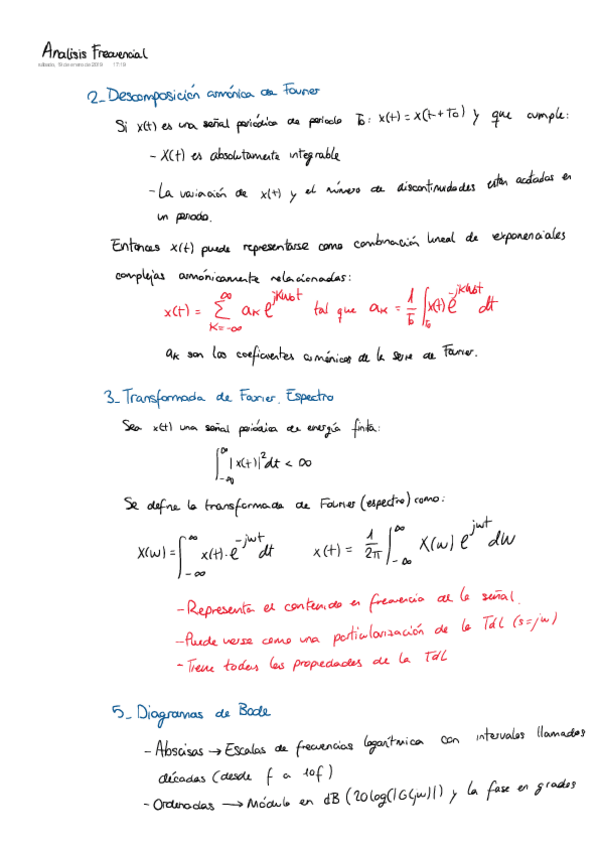 Analisis Frecuencial
sábado, 19 de enero de 2019 17:19
2_ Descomposición armónica de Fourier
Si x(t) es una señal periódica de periodo To: x(t) = x(t+To) y que cumple:
- X(t) es absolutamente integrable
- La variación de x(t) y el número de discontinuidades esten acotadas en
un periodo.
Entonces x(t) puede representarse como combinación lineal de exponenciales
complejas armónicamente relacionadas:
x(t) = ∑_{K=-∞}^{∞} a_K e^{jKω₀t} tal que a_K = 1/T₀ ∫_{T₀} x(t) e^{-jKω₀t} dt
a_K son los coeficientes armónicos de la serie de Fourier.
3_ Transformada de Fourier. Espectro
Sea x(t) una señal periódica de energía finita:
∫_{-∞}^{∞} |x(t)|² dt < ∞
Se define la transformada de Fourier (espectro) como:
X(ω) = ∫_{-∞}^{∞} x(t)·e^{-jωt} dt x(t) = 1/2π ∫_{-∞}^{∞} X(ω) e^{jωt} dω
- Representa el contenido en frecuencia de la señal.
- Puede verse como una particularización de la TdL (s=jω)
- Tiene todas las propiedades de la TdL
5_ Diagramas de Bode
- Abscisas → Escalas de frecuencias logarítmica con intervalos llamados
décadas (desde f a 10f)
- Ordenadas → Módulo en dB (20log(|G(jω)|) y la fase en grados